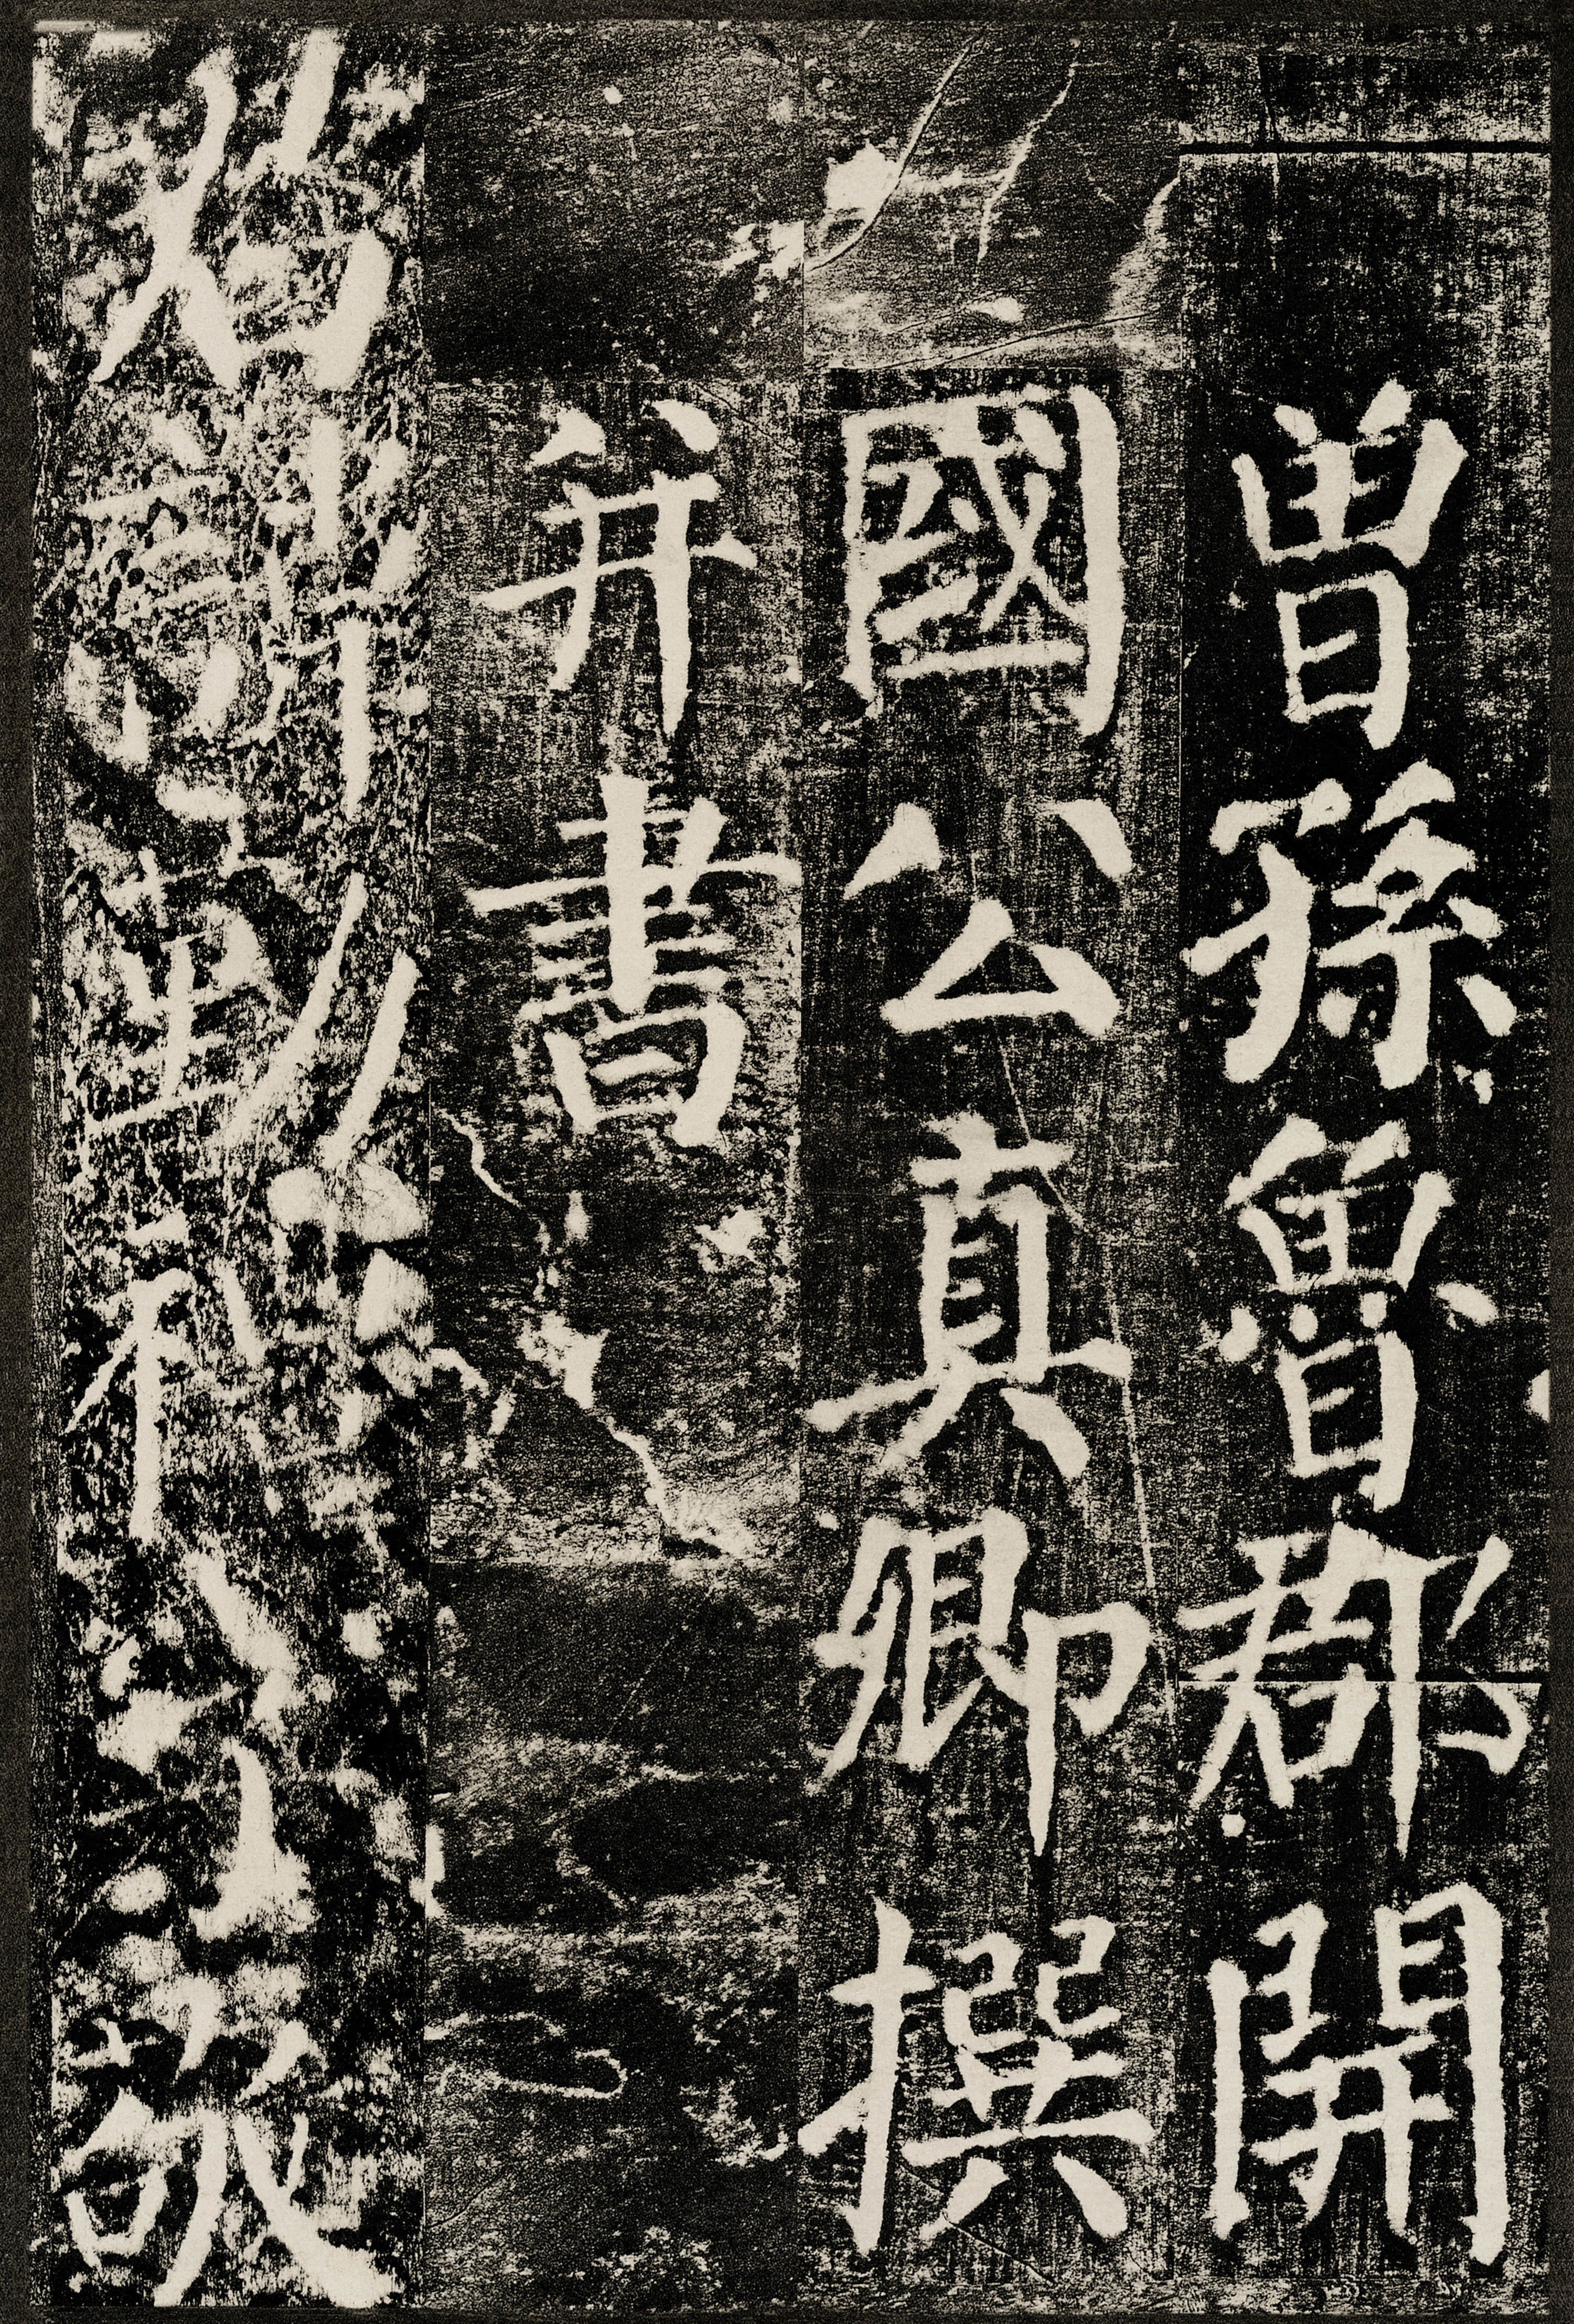 曾孫魯郡開
國公真卿撰
并書
勤敬